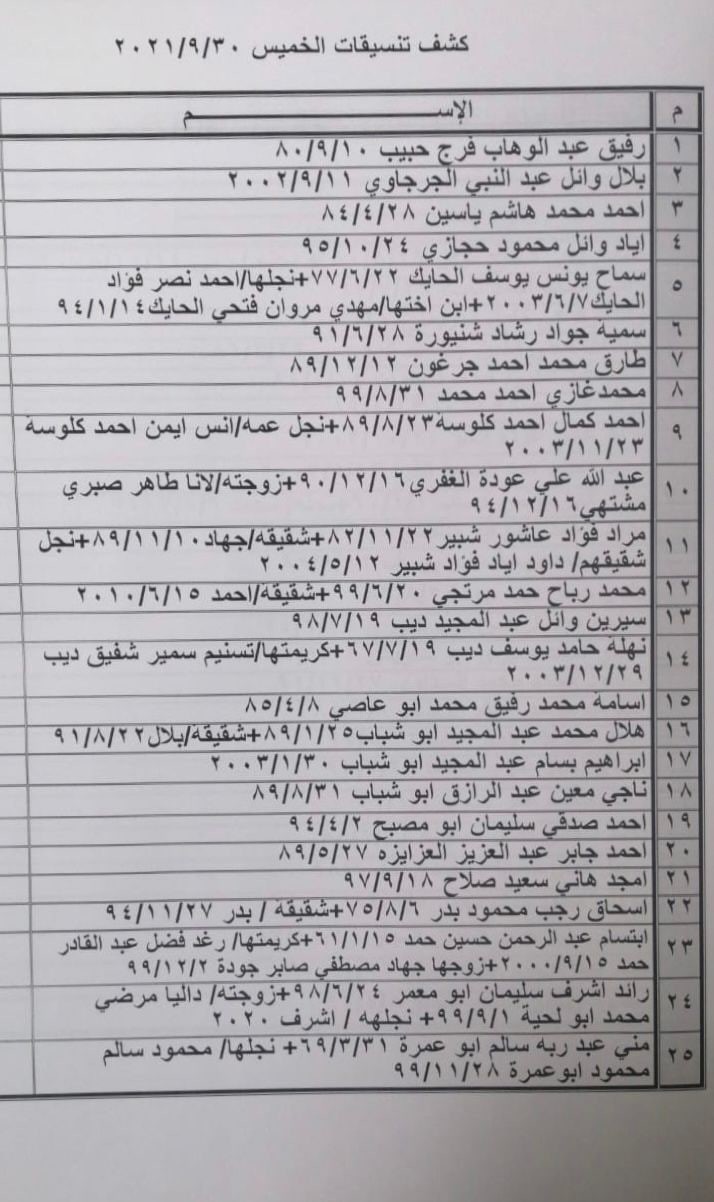 كشف تنسيقات الخميس ٢٠٢١/٩/٣٠
م الإســـــــــــــــم
١ رفيق عبد الوهاب فرج حبيب ٨٠/٩/١٠
٢ بلال وائل عبد النبي الجرجاوي ٢٠٠٢/٩/١١
٣ احمد محمد هاشم ياسين ٨٤/٤/٢٨
٤ اياد وائل محمود حجازي ٩٥/١٠/٢٤
٥ سماح يونس يوسف الحايك ٧٧/٦/٢٢+نجلها/احمد نصر فؤاد
الحايك٢٠٠٣/٦/٧+ابن اختها/مهدي مروان فتحي الحايك٩٤/١/١٤
٦ سمية جواد رشاد شنيورة ٩١/٦/٢٨
٧ طارق محمد احمد جرغون ٨٩/١٢/١٢
٨ محمدغازي احمد محمد ٩٩/٨/٣١
٩ احمد كمال احمد كلوسة٨٩/٨/٢٣+نجل عمه/انس ايمن احمد كلوسة
٢٠٠٣/١١/٢٣
١٠ عبد الله علي عودة الغفري٩٠/١٢/١٦+زوجته/لانا طاهر صبري
مشتهي٩٤/١٢/١٦
١١ مراد فؤاد عاشور شبير٨٢/١١/٢٢+شقيقه/جهاد٨٩/١١/١٠+نجل
شقيقهم/ داود اياد فؤاد شبير ٢٠٠٤/٥/١٢
١٢ محمد رباح حمد مرتجي ٩٩/٦/٢٠+شقيقة/احمد ٢٠١٠/٦/١٥
١٣ سيرين وائل عبد المجيد ديب ٩٨/٧/١٩
١٤ نهلة حامد يوسف ديب ٦٧/٧/١٩+كريمتها/تسنيم سمير شفيق ديب
٢٠٠٣/١٢/٢٩
١٥ اسامة محمد رفيق محمد ابو عاصي ٨٥/٤/٨
١٦ هلال محمد عبد المجيد ابو شباب٨٩/١/٢٥+شقيقة/بلال٩١/٨/٢٢
١٧ ابراهيم بسام عبد المجيد ابو شباب ٢٠٠٣/١/٣٠
١٨ ناجي معين عبد الرازق ابو شباب ٨٩/٨/٣١
١٩ احمد صدقي سليمان ابو مصبح ٩٤/٤/٢
٢٠ احمد جابر عبد العزيز العزايزه ٨٩/٥/٢٧
٢١ امجد هاني سعيد صلاح ٩٧/٩/١٨
٢٢ اسحاق رجب محمود بدر ٧٥/٨/٦+شقيقة / بدر ٩٤/١١/٢٧
٢٣ ابتسام عبد الرحمن حسين حمد ٦١/١/١٥+كريمتها/ رغد فضل عبد القادر
حمد ٢٠٠٠/٩/١٥+زوجها جهاد مصطفي صابر جودة ٩٩/١٢/٢
٢٤ رائد اشرف سليمان ابو معمر ٩٨/٦/٢٤+زوجته/ داليا مرضي
محمد ابو لحية ٩٩/٩/١+ نجلهه / اشرف ٢٠٢٠
٢٥ مني عبد ربه سالم ابو عمرة ٦٩/٣/٣١+ نجلها/ محمود سالم
محمود ابوعمرة ٩٩/١١/٢٨